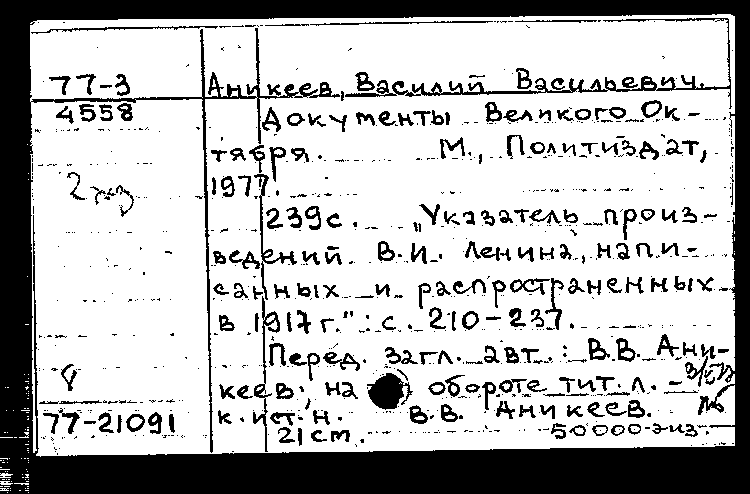 77-3 Аникеев, Василий Васильевич.
4558 Документы Великого Ок-
тября. М., Политиздат,
2 экз 1977.
239с. „Указатель произ-
ведений В.И. Ленина, напи-
санных и распространенных
в 1917г.": с. 210-237.
Перед. загл. авт.: В.В. Ани-
8 кеев; на обороте тит. л. -
77-21091 к. ист. н. В.В. Аникеев.
21см. 50000 экз.